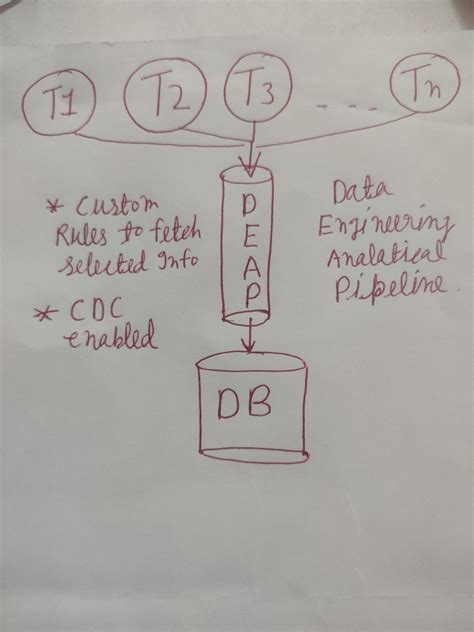 T1 T2 T3 ---- Tn
* Custom
Rules to fetch
selected Info
* CDC
enabled
DEAP
Data
Engineering
Analatical
Pipeline.
DB